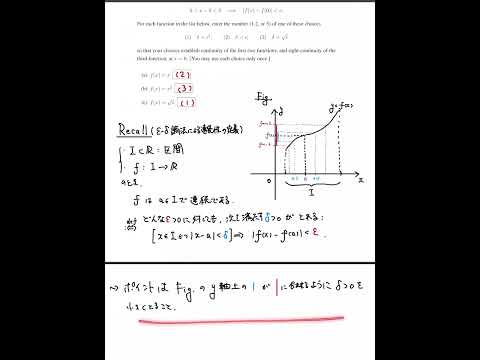 0 < x − b < δ ⟹ |f(x) − f(b)| < ε.
For each function in the list below, enter the number (1, 2, or 3) of one of these choices,
(1) δ = ε²; (2) δ = ε; (3) δ = √ε
so that your choices establish continuity of the first two functions, and right-continuity of the
third function, at x = 0. [You may use each choice only once.]
(a) f(x) = x (2)
(b) f(x) = x² (3)
(c) f(x) = √x (1)
Recall (ε-δ論法による連続性の定義)
・I⊂ℝ : 区間
・f : I → ℝ
a∈I.
f は a∈I で連続である.
def ⟺ どんな ε>0 に対しても, 次を満たす δ>0 がとれる:
[x∈I かつ |x−a|<δ] ⟹ |f(x)−f(a)|<ε.
Fig.
y
y=f(x)
f(a)
0
a
x
I
〜 ポイントは Fig. の y軸上の | が | に含まれるように δ>0 を
小さくとること.